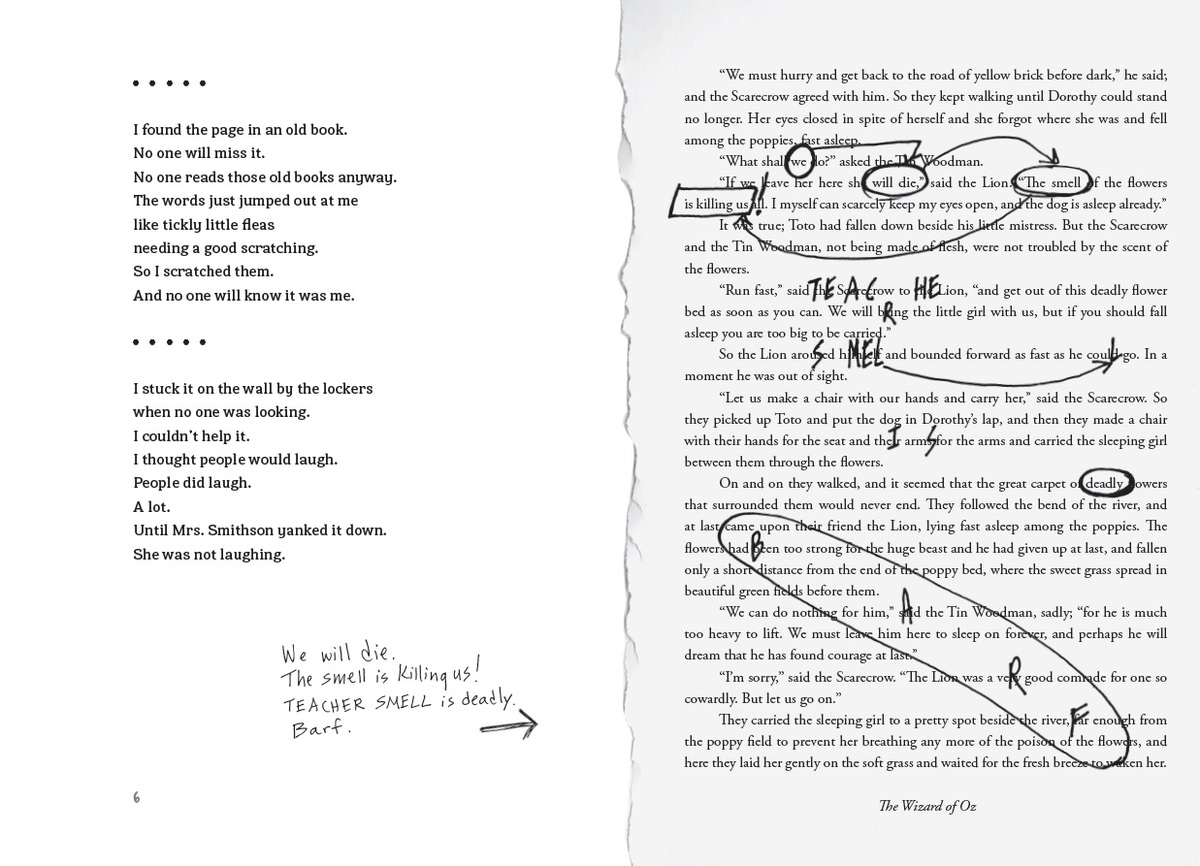 • • • • •
I found the page in an old book.
No one will miss it.
No one reads those old books anyway.
The words just jumped out at me
like tickly little fleas
needing a good scratching.
So I scratched them.
And no one will know it was me.
• • • • •
I stuck it on the wall by the lockers
when no one was looking.
I couldn’t help it.
I thought people would laugh.
People did laugh.
A lot.
Until Mrs. Smithson yanked it down.
She was not laughing.
We will die.
The smell is killing us!
TEACHER SMELL is deadly.
Barf.
6
“We must hurry and get back to the road of yellow brick before dark,” he said;
and the Scarecrow agreed with him. So they kept walking until Dorothy could stand
no longer. Her eyes closed in spite of herself and she forgot where she was and fell
among the poppies, fast asleep.
“What shall we do?” asked the Tin Woodman.
“If we leave her here she will die,” said the Lion. “The smell of the flowers
is killing us all. I myself can scarcely keep my eyes open, and the dog is asleep already.”
!
It was true; Toto had fallen down beside his little mistress. But the Scarecrow
and the Tin Woodman, not being made of flesh, were not troubled by the scent of
the flowers.
“Run fast,” said the Scarecrow to the Lion, “and get out of this deadly flower
TEAC HE
bed as soon as you can. We will bring the little girl with us, but if you should fall
R
asleep you are too big to be carried.”
So the Lion aroused himself and bounded forward as fast as he could go. In a
S MEL L
moment he was out of sight.
“Let us make a chair with our hands and carry her,” said the Scarecrow. So
they picked up Toto and put the dog in Dorothy’s lap, and then they made a chair
with their hands for the seat and their arms for the arms and carried the sleeping girl
I S
between them through the flowers.
On and on they walked, and it seemed that the great carpet of deadly flowers
that surrounded them would never end. They followed the bend of the river, and
at last came upon their friend the Lion, lying fast asleep among the poppies. The
flowers had been too strong for the huge beast and he had given up at last, and fallen
B
only a short distance from the end of the poppy bed, where the sweet grass spread in
beautiful green fields before them.
“We can do nothing for him,” said the Tin Woodman, sadly; “for he is much
A
too heavy to lift. We must leave him here to sleep on forever, and perhaps he will
dream that he has found courage at last.”
“I’m sorry,” said the Scarecrow. “The Lion was a very good comrade for one so
R
cowardly. But let us go on.”
They carried the sleeping girl to a pretty spot beside the river, far enough from
F
the poppy field to prevent her breathing any more of the poison of the flowers, and
here they laid her gently on the soft grass and waited for the fresh breeze to waken her.
The Wizard of Oz